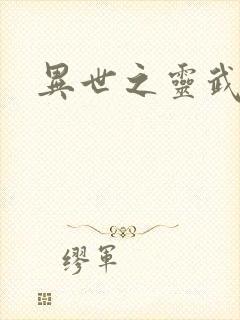 異世之靈武
繆軍